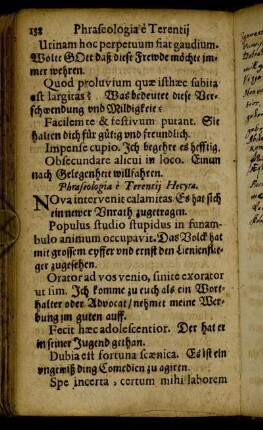 138 Phraseologia è Terentij
Utinam hoc perpetuum fiat gaudium.
Wolte GOtt daß diese Frewde möchte im-
mer wehren.
Quod proluvium quæ isthæc subita
est largitas? Was bedeutet diese Ver-
schwendung vnd Mildigkeit?
Facilem te & festivum putant. Sie
halten dich für gütig vnd freundlich.
Impense cupio. Ich begehre es hefftig.
Obsecundare alicui in loco. Einen
nach Gelegenheit willfahren.
Phraseologia è Terentij Hecyra.
NOva intervenit calamitas Es hat sich
ein newer Vnrath zugetragen.
Populus studio stupidus in funam-
bulo animum occupavit. Das Volck hat
mit grossem eyffer vnd ernst den Lienienflie-
ger zugesehen.
Orator ad vos venio, sinite exorator
ut sim. Ich komme zu euch als ein Wort-
halter oder Advocat / nehmet meine Wer-
bung im guten auff.
Fecit hæc adolescentior. Der hat er
in seiner Jugend gethan.
Dubia est fortuna scænica. Es ist ein
vngewiß ding Comedien zu agiren.
Spe incerta, certum mihi laborem